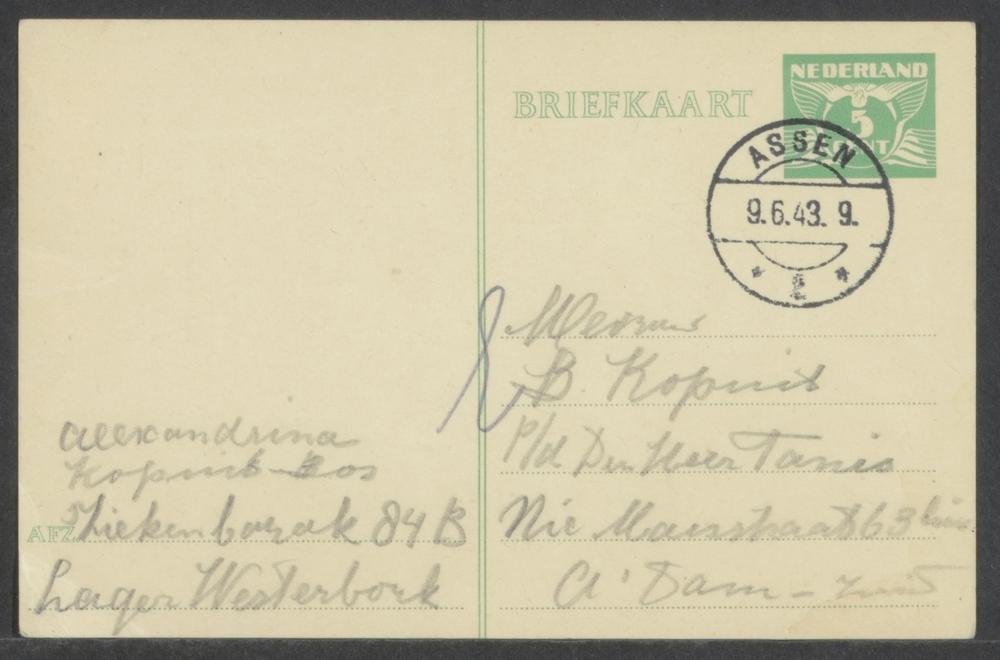 BRIEFKAART
NEDERLAND
5
CENT
ASSEN
9.6.43. 9.
Mevrouw
B. Kopuit
P/d Den Heer Tanis
Nic Maesstraat 63 huis
A'Dam - Zuid
Alexandrina
Kopuit-Bos
AFZ. Ziekenbarak 84 B
Lager Westerbork